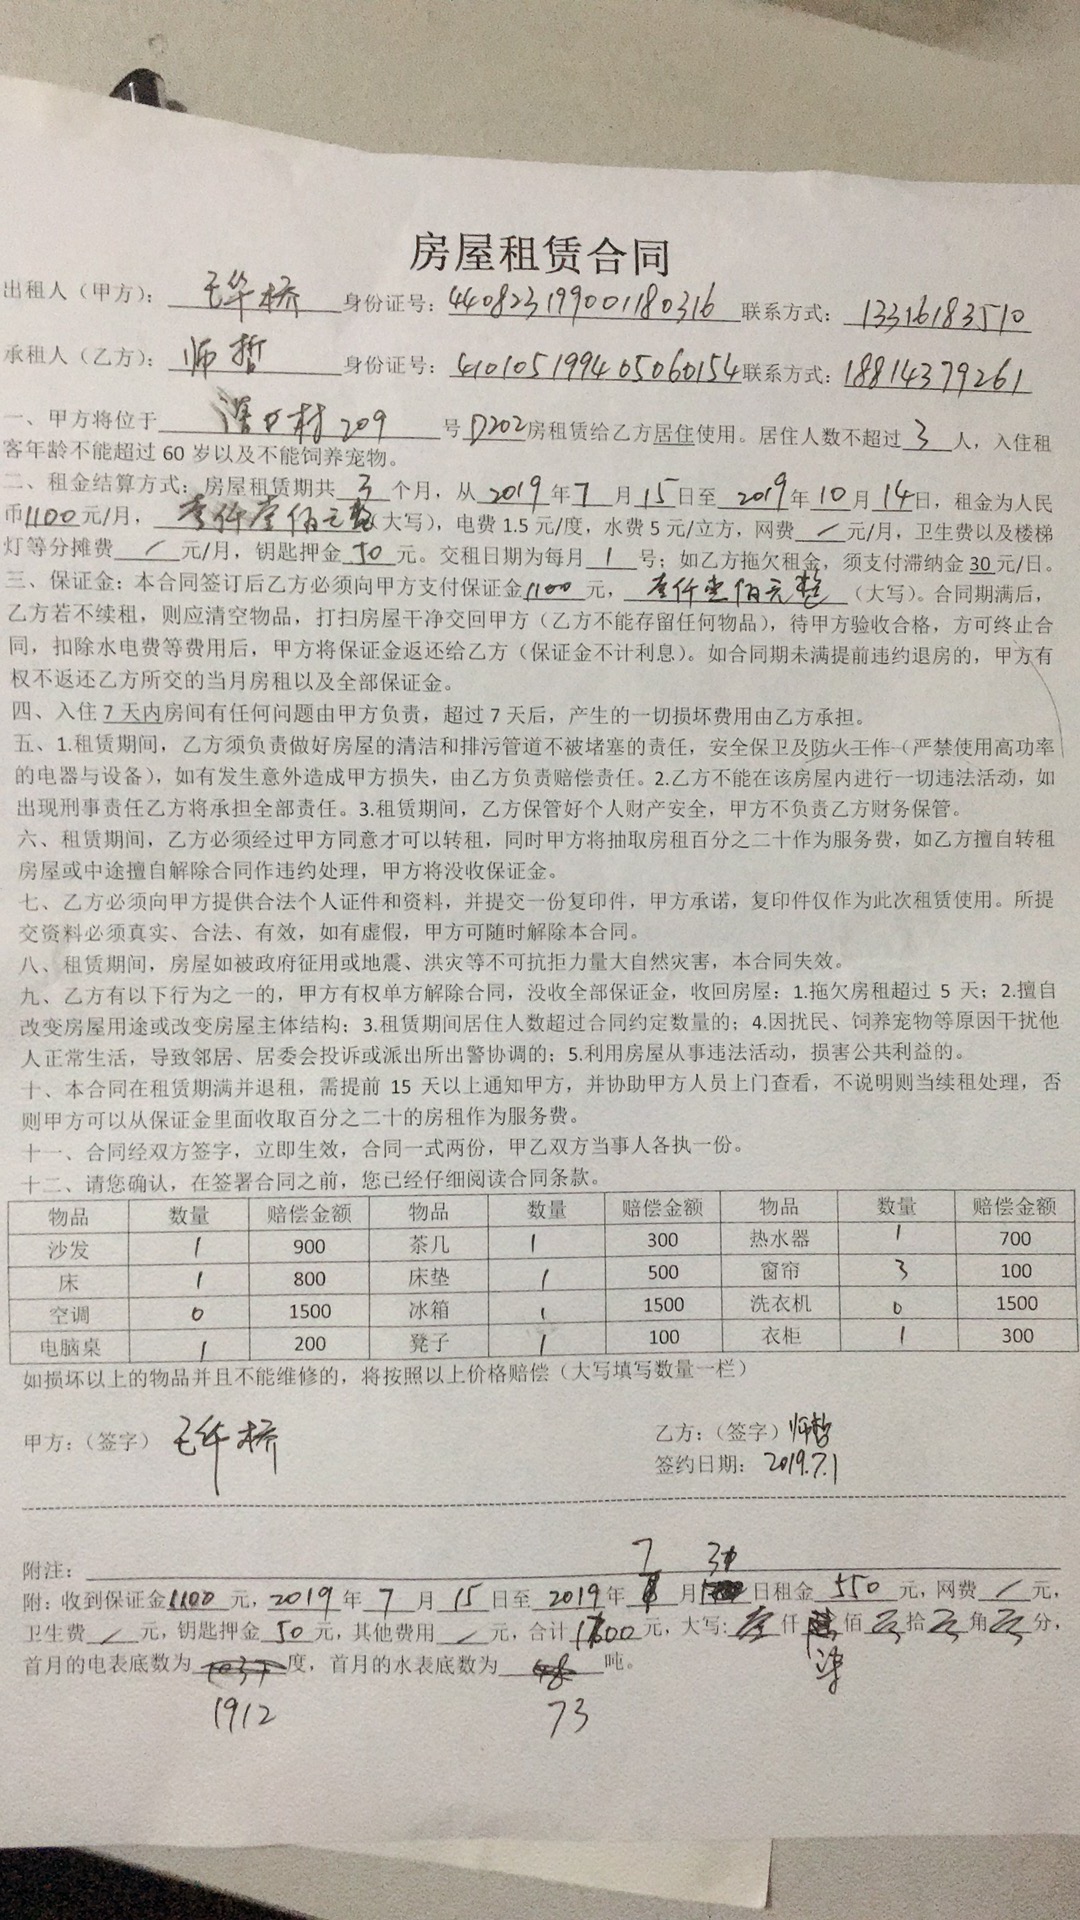 房屋租赁合同
出租人（甲方）： 华桥 身份证号：440823199001180316 联系方式：13316183510
承租人（乙方）： 师哲 身份证号：410105199405060154 联系方式：18814379261
一、甲方将位于 村209 号D202房租赁给乙方居住使用。居住人数不超过 3 人，入住租
客年龄不能超过 60 岁以及不能饲养宠物。
二、租金结算方式：房屋租赁期共 3 个月，从 2019 年 7 月 15 日至 2019 年 10 月 14 日，租金为人民
币1100元/月， 壹仟壹佰元整（大写），电费 1.5 元/度，水费 5 元/立方，网费 / 元/月，卫生费以及楼梯
灯等分摊费 / 元/月，钥匙押金 50 元。交租日期为每月 1 号；如乙方拖欠租金，须支付滞纳金 30 元/日。
三、保证金：本合同签订后乙方必须向甲方支付保证金1100 元， 壹仟壹佰元整 （大写）。合同期满后，
乙方若不续租，则应清空物品，打扫房屋干净交回甲方（乙方不能存留任何物品），待甲方验收合格，方可终止合
同，扣除水电费等费用后，甲方将保证金返还给乙方（保证金不计利息）。如合同期未满提前违约退房的，甲方有
权不返还乙方所交的当月房租以及全部保证金。
四、入住 7 天内房间有任何问题由甲方负责，超过 7 天后，产生的一切损坏费用由乙方承担。
五、1.租赁期间，乙方须负责做好房屋的清洁和排污管道不被堵塞的责任，安全保卫及防火工作（严禁使用高功率
的电器与设备），如有发生意外造成甲方损失，由乙方负责赔偿责任。2.乙方不能在该房屋内进行一切违法活动，如
出现刑事责任乙方将承担全部责任。3.租赁期间，乙方保管好个人财产安全，甲方不负责乙方财务保管。
六、租赁期间，乙方必须经过甲方同意才可以转租，同时甲方将抽取房租百分之二十作为服务费，如乙方擅自转租
房屋或中途擅自解除合同作违约处理，甲方将没收保证金。
七、乙方必须向甲方提供合法个人证件和资料，并提交一份复印件，甲方承诺，复印件仅作为此次租赁使用。所提
交资料必须真实、合法、有效，如有虚假，甲方可随时解除本合同。
八、租赁期间，房屋如被政府征用或地震、洪灾等不可抗拒力量大自然灾害，本合同失效。
九、乙方有以下行为之一的，甲方有权单方解除合同，没收全部保证金，收回房屋：1.拖欠房租超过 5 天；2.擅自
改变房屋用途或改变房屋主体结构；3.租赁期间居住人数超过合同约定数量的；4.因扰民、饲养宠物等原因干扰他
人正常生活，导致邻居、居委会投诉或派出所出警协调的；5.利用房屋从事违法活动，损害公共利益的。
十、本合同在租赁期满并退租，需提前 15 天以上通知甲方，并协助甲方人员上门查看，不说明则当续租处理，否
则甲方可以从保证金里面收取百分之二十的房租作为服务费。
十一、合同经双方签字，立即生效，合同一式两份，甲乙双方当事人各执一份。
十二、请您确认，在签署合同之前，您已经仔细阅读合同条款。
物品 数量 赔偿金额 物品 数量 赔偿金额 物品 数量 赔偿金额
沙发 1 900 茶几 1 300 热水器 1 700
床 1 800 床垫 1 500 窗帘 3 100
空调 0 1500 冰箱 1 1500 洗衣机 0 1500
电脑桌 1 200 凳子 1 100 衣柜 1 300
如损坏以上的物品并且不能维修的，将按照以上价格赔偿（大写填写数量一栏）
甲方：（签字） 华桥 乙方：（签字）师哲
签约日期： 2019.7.1
附注：
7 31
附：收到保证金1100 元，2019 年 7 月 15 日至 2019 年 月 日租金 550 元，网费 / 元，
卫生费 / 元，钥匙押金 50 元，其他费用 / 元，合计 1700 元，大写： 壹 仟 佰 零 拾 零 角 零 分，
柒
首月的电表底数为 度，首月的水表底数为 吨。
1912 73